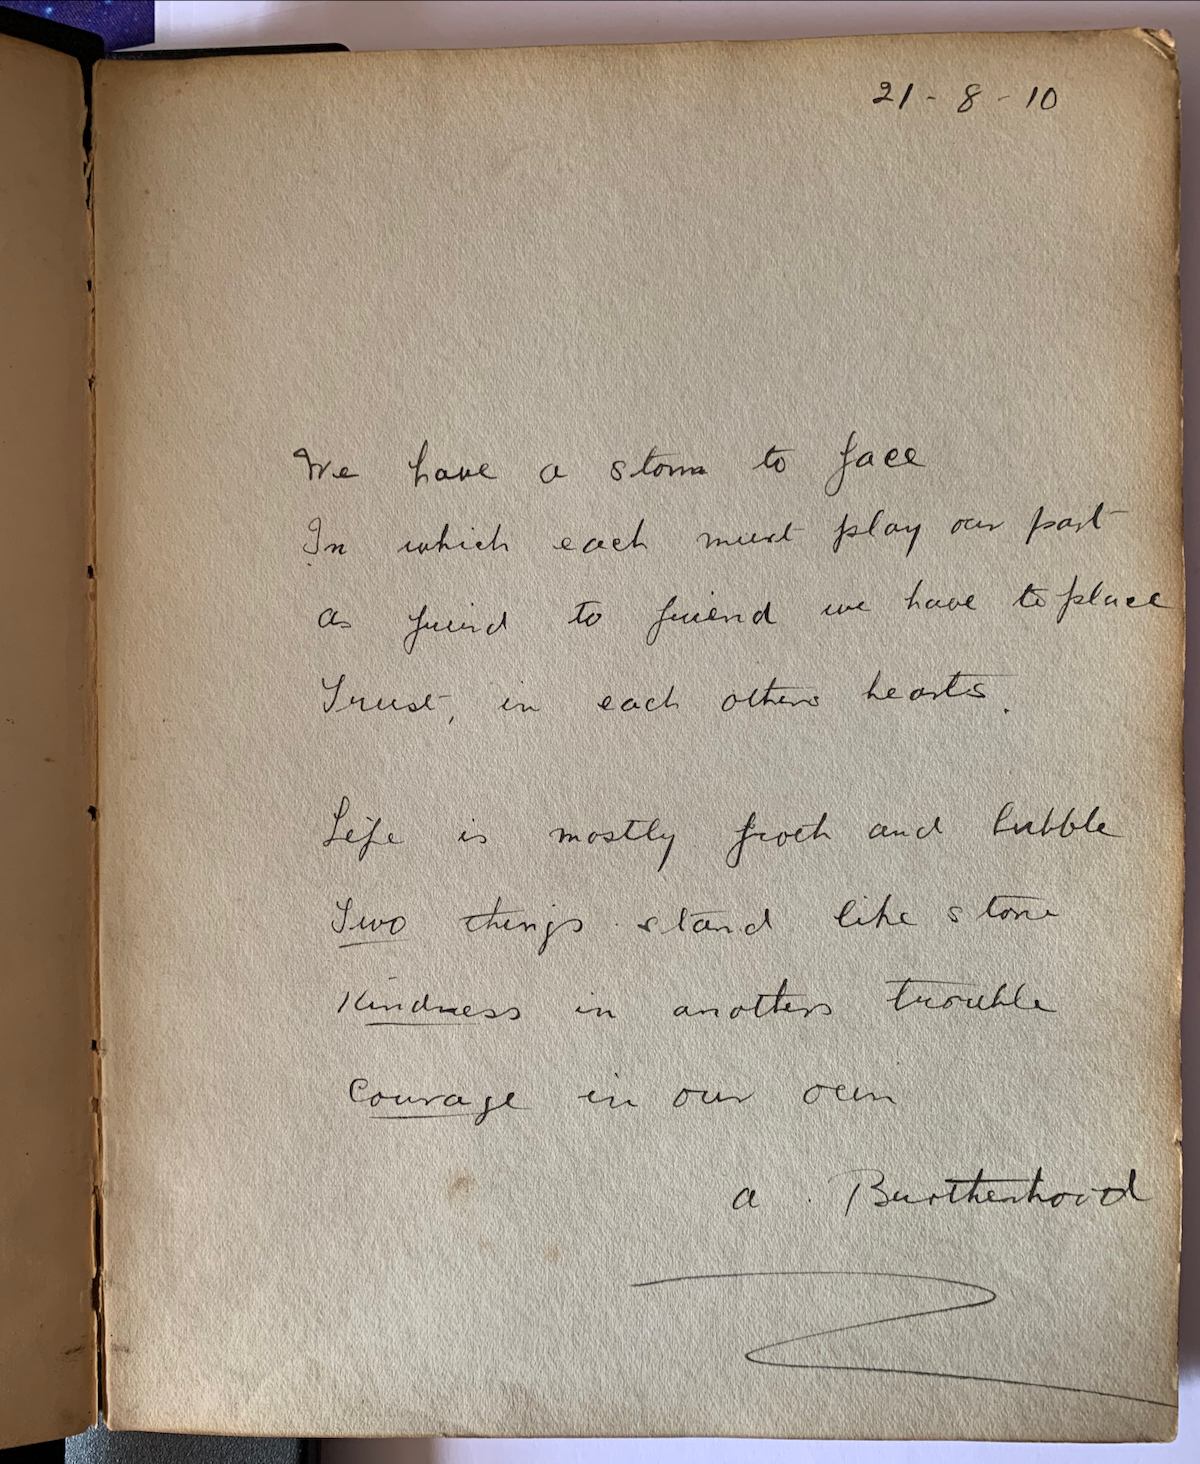 21 - 8 - 10
We have a storm to face
In which each must play our part
as friend to friend we have to place
Trust, in each others hearts.
Life is mostly froth and bubble
Two things stand like stone
Kindness in anothers trouble
Courage in our own
a . Brotherhood